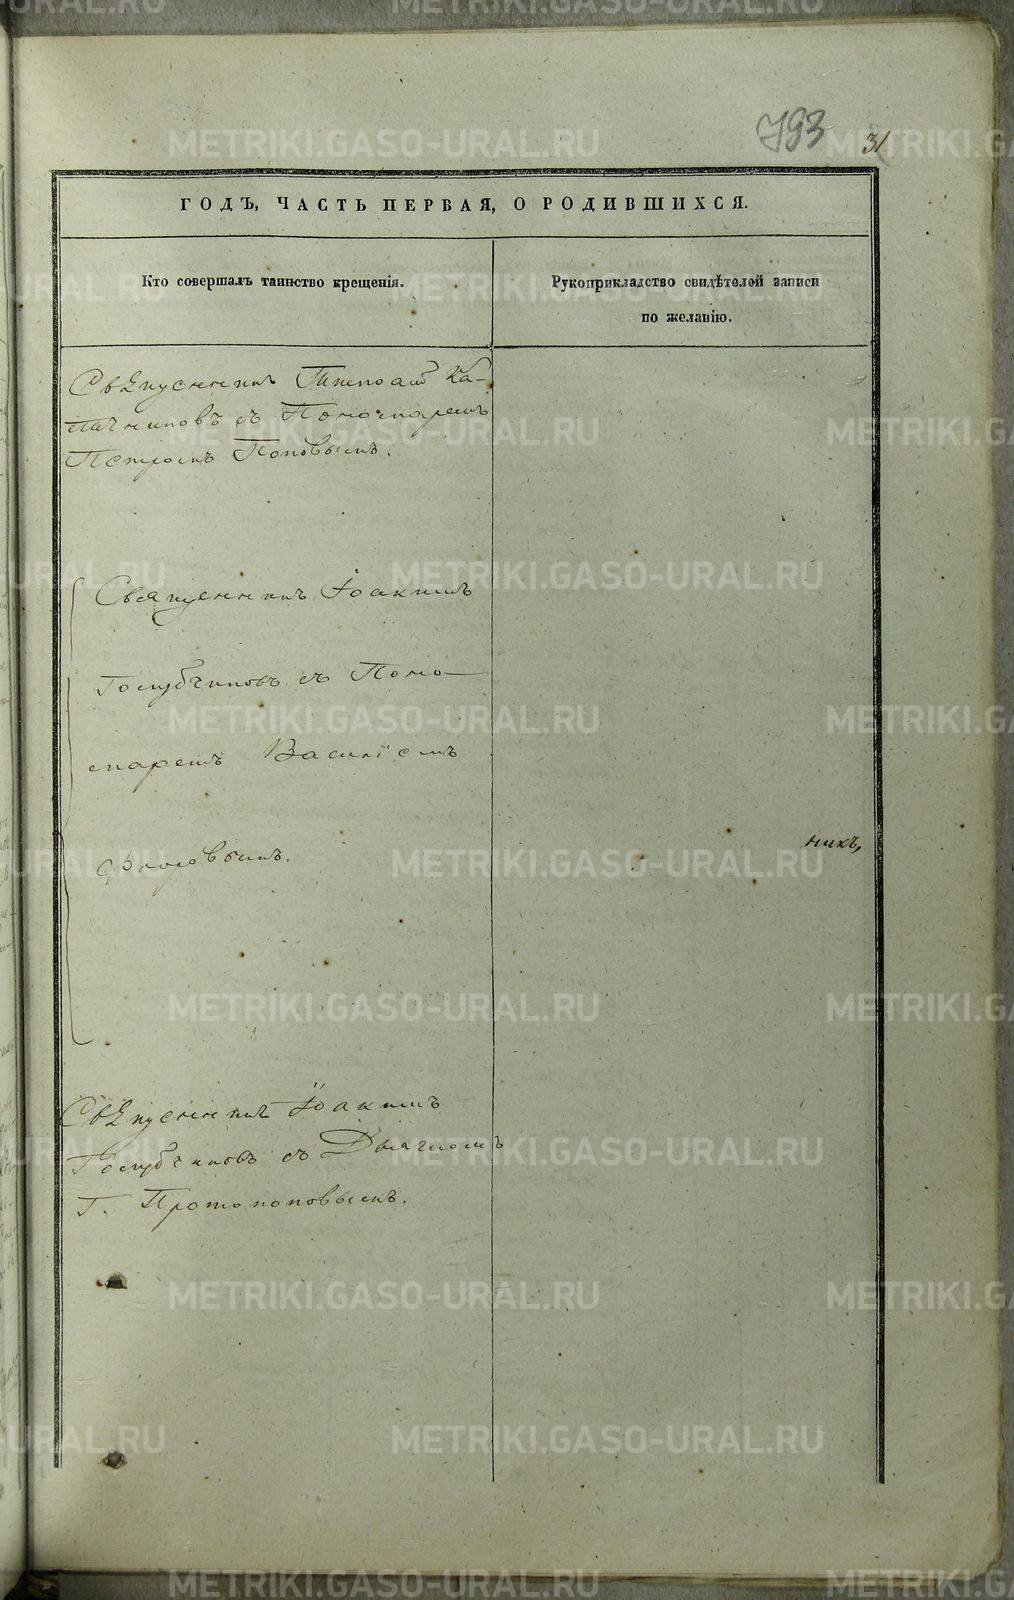 793
31
ГОДЪ, ЧАСТЬ ПЕРВАЯ, О РОДИВШИХСЯ.
Кто совершалъ таинство крещенія.
Рукоприкладство свидѣтелей записи
по желанію.
Священникъ Ка-
съ Пономаремъ
Петромъ Поповымъ.
Священникъ Іоакимъ
Голубчиковъ съ Поно-
маремъ Василіемъ
Флоровымъ.
никъ,
Священникъ Іоакимъ
Голубчиковъ съ Дьячкомъ
Г. Протопоповымъ.
METRIKI.GASO-URAL.RU